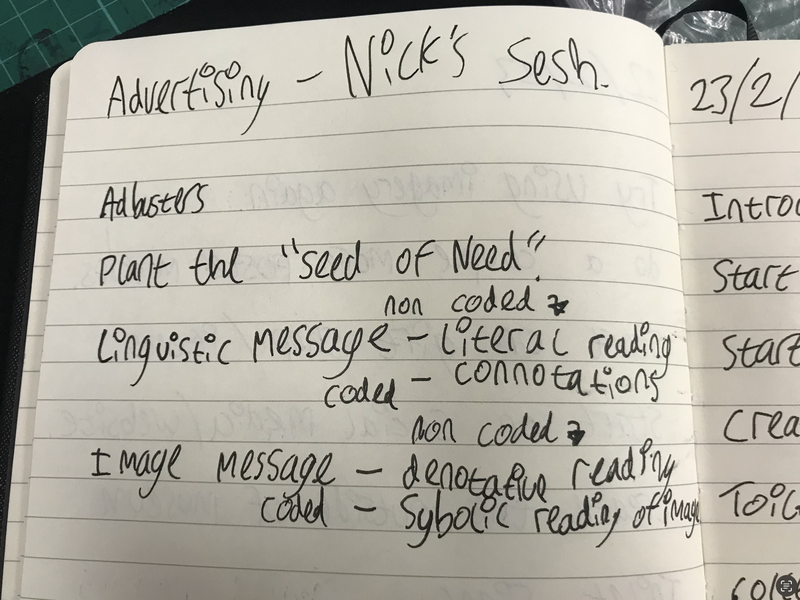 Advertising - Nick's Sesh.
Adbusters
Plant the "seed of Need".
non coded
Linguistic message - Literal reading
coded - connotations
non coded
Image message - denotative reading
coded - Sybolic reading of image
23/2/
Start
Start